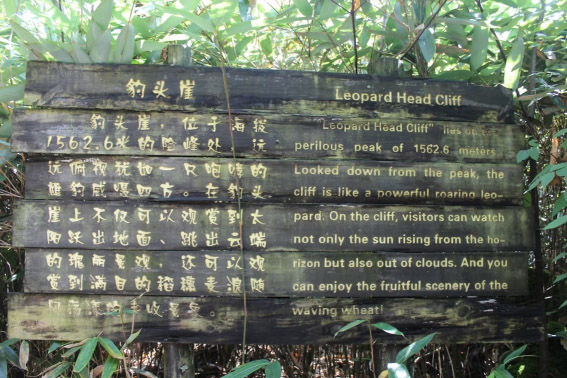 豹头崖
豹头崖，位于海拔
1562.6米的险峰处 远
远俯视犹如一只咆哮的
雄豹威慑四方。在豹头
崖上不仅可以观赏到太
阳跃出地面、跳出云端
的瑰丽景观 还可以观
赏到满目的稻穗
丰收景象。
Leopard Head Cliff
"Leopard Head Cliff" lies
perilous peak of 1562.6 meters
Looked down from the peak, the
cliff is like a powerful roaring leo-
pard. On the cliff, visitors can watch
not only the sun rising from the ho-
rizon but also out of clouds. And you
can enjoy the fruitful scenery of the
waving wheat!